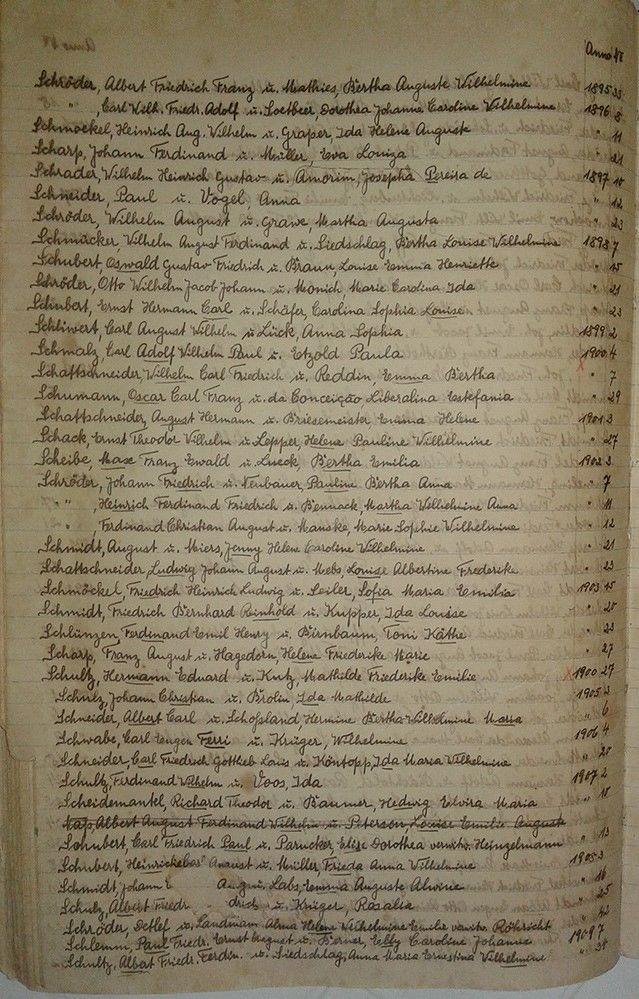 Anno №
Schröder, Albert Friedrich Franz u. Mathies, Bertha Auguste Wilhelmine 1895 33
" " , Carl Wilh. Friedr. Adolf u. Soetbeer, Dorothea Johanne Caroline Wilhelmine 1896 8
Schmoekel, Heinrich Aug. Wilhelm u. Graper, Ida Helene Auguste " 11
Scharp, Johann Ferdinand u. Müller, Eva Louiza " 21
Schrader, Wilhelm Heinrich Gustav u. Amorim, Josepha Pereira de 1897 10
Schneider, Paul u. Vogel, Anna " 12
Schröder, Wilhelm August u. Grawe, Martha Augusta " 23
Schmücker, Wilhelm August Ferdinand u. Siedschlag, Bertha Louise Wilhelmine 1898 7
Schubert, Oswald Gustav Friedrich u. Braun, Louise Emma Henriette " 15
Schröder, Otto Wilhelm Jacob Johann u. Monich Marie Carolina Ida " 21
Schubert, Ernst Hermann Carl u. Schäfer, Carolina Sophia Louise " 23
Schliwert, Carl August Wilhelm u. Lück, Anna Sophia 1899 2
Schmalz, Carl Adolf Wilhelm Paul u. Etzold Paula 1900 4
Schattschneider, Wilhelm Carl Friedrich u. Reddin, Emma Bertha " 7
Schumann, Oscar Carl Franz u. da Conceição Liberalina Estefania " 29
Schattschneider, August Hermann u. Briesemeister, Emma Helene 1901 3
Schack, Ernst Theodor Wilhelm u. Lepper, Helene Pauline Wilhelmine " 27
Scheibe, Max Franz Ewald u. Lueck, Bertha Emilia 1902 3
Schröder, Johann Friedrich u. Neubauer, Pauline Bertha Anna " 7
" " , Heinrich Ferdinand Friedrich u. Bennack, Martha Wilhelmine Anna " 11
" " , Ferdinand Christian August u. Manske, Marie Sophie Wilhelmine " 12
Schmidt, August u. Miers, Jenny Helene Caroline Wilhelmine " 21
Schattschneider, Ludwig Johann August u. Mebs, Louise Albertine Frederike " 23
Schmöckel, Friedrich Heinrich Ludwig u. Seiler, Sofia Maria Emilia 1903 15
Schmidt, Friedrich Bernhard Reinhold u. Kupper, Ida Louise " 20
Schlünzen, Ferdinand Emil Henry u. Birnbaum, Toni Käthe " 23
Scharp, Franz August u. Hagedorn, Helene Friederike Marie " 27
Schultz, Hermann Eduard u. Kutz, Mathilde Friederike Emilie 1900 27
Schulz, Johann Christian u. Brolin, Ida Mathilde 1905 2
Schneider, Albert Carl u. Schossland Hermine Bertha Wilhelmine Maria " 6
Schwabe, Carl Eugen Ferri u. Krüger, Wilhelmine 1906 4
Schneider, Carl Friedrich Gottlieb Louis u. Köntopp, Ida Maria Wilhelmine " 20
Schultz, Ferdinand Wilhelm u. Voos, Ida 1907 2
Scheidemantel, Richard Theodor u. Baumer, Hedwig Elvira Maria " 18
Albert August Ferdinand Wilhelm u. Peterson, Louise Emilie Auguste
Schubert, Carl Friedrich Paul u. Parucker, Elise Dorothea verwitw. Heinzelmann " 13
Schubert, August u. Müller, Frieda Anna Wilhelmine 3
Schmidt, Johann Labs, Emma Auguste Alwine " 16
Schulz, Albert Friedr u. Krüger, Rosalia " 25
Schröder, Detlef u. Landmann Alma Helene Wilhelmine Emilie verwitw. Röhricht " 42
Schlemm, Paul Friedr. Ernst August u. Börner, Elly Caroline Johanne 1909 7
Schultz, Albert Friedr. Ferdin. u. Siedschlag, Anna Maria Ernestina Wilhelmine "